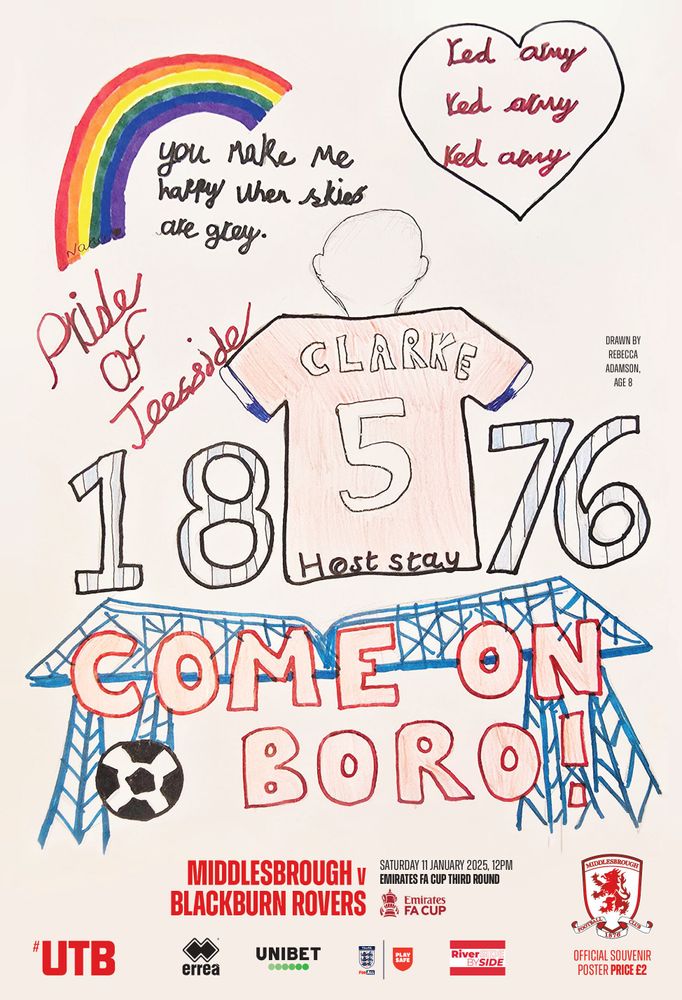 Red army
Red army
Red army
you make me
happy when skies
are grey.
Pride
of
Teesside
CLARKE
5
DRAWN BY
REBECCA
ADAMSON,
AGE 8
18
76
Host stay
COME ON
BORO!
MIDDLESBROUGH V
BLACKBURN ROVERS
SATURDAY 11 JANUARY 2025, 12PM
EMIRATES FA CUP THIRD ROUND
Emirates
FA CUP
MIDDLESBROUGH
FOOTBALL CLUB
1876
#UTB
errea
UNIBET
For All
PLAY
SAFE
River
BY SIDE
OFFICIAL SOUVENIR
POSTER PRICE £2